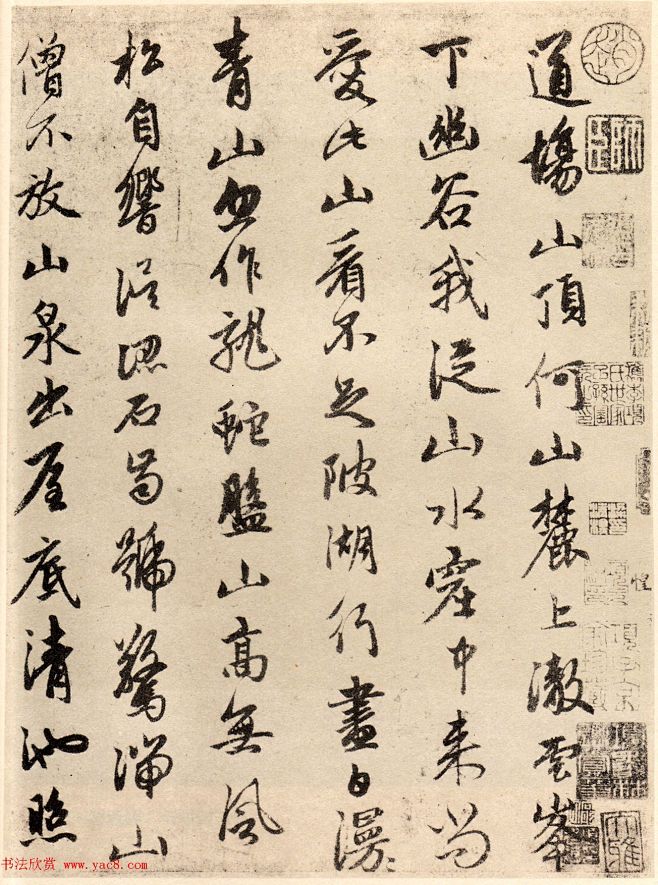 道場山頂何山麓上澈雲峯
下幽谷我從山水窟中来尚
愛此山看不足陂湖行盡白漫〻
青山忽作龍蛇盤山高無風
松自響誤認石齒號驚湍山
僧不放山泉出屋底清池照
书法欣赏 www.yac8.com